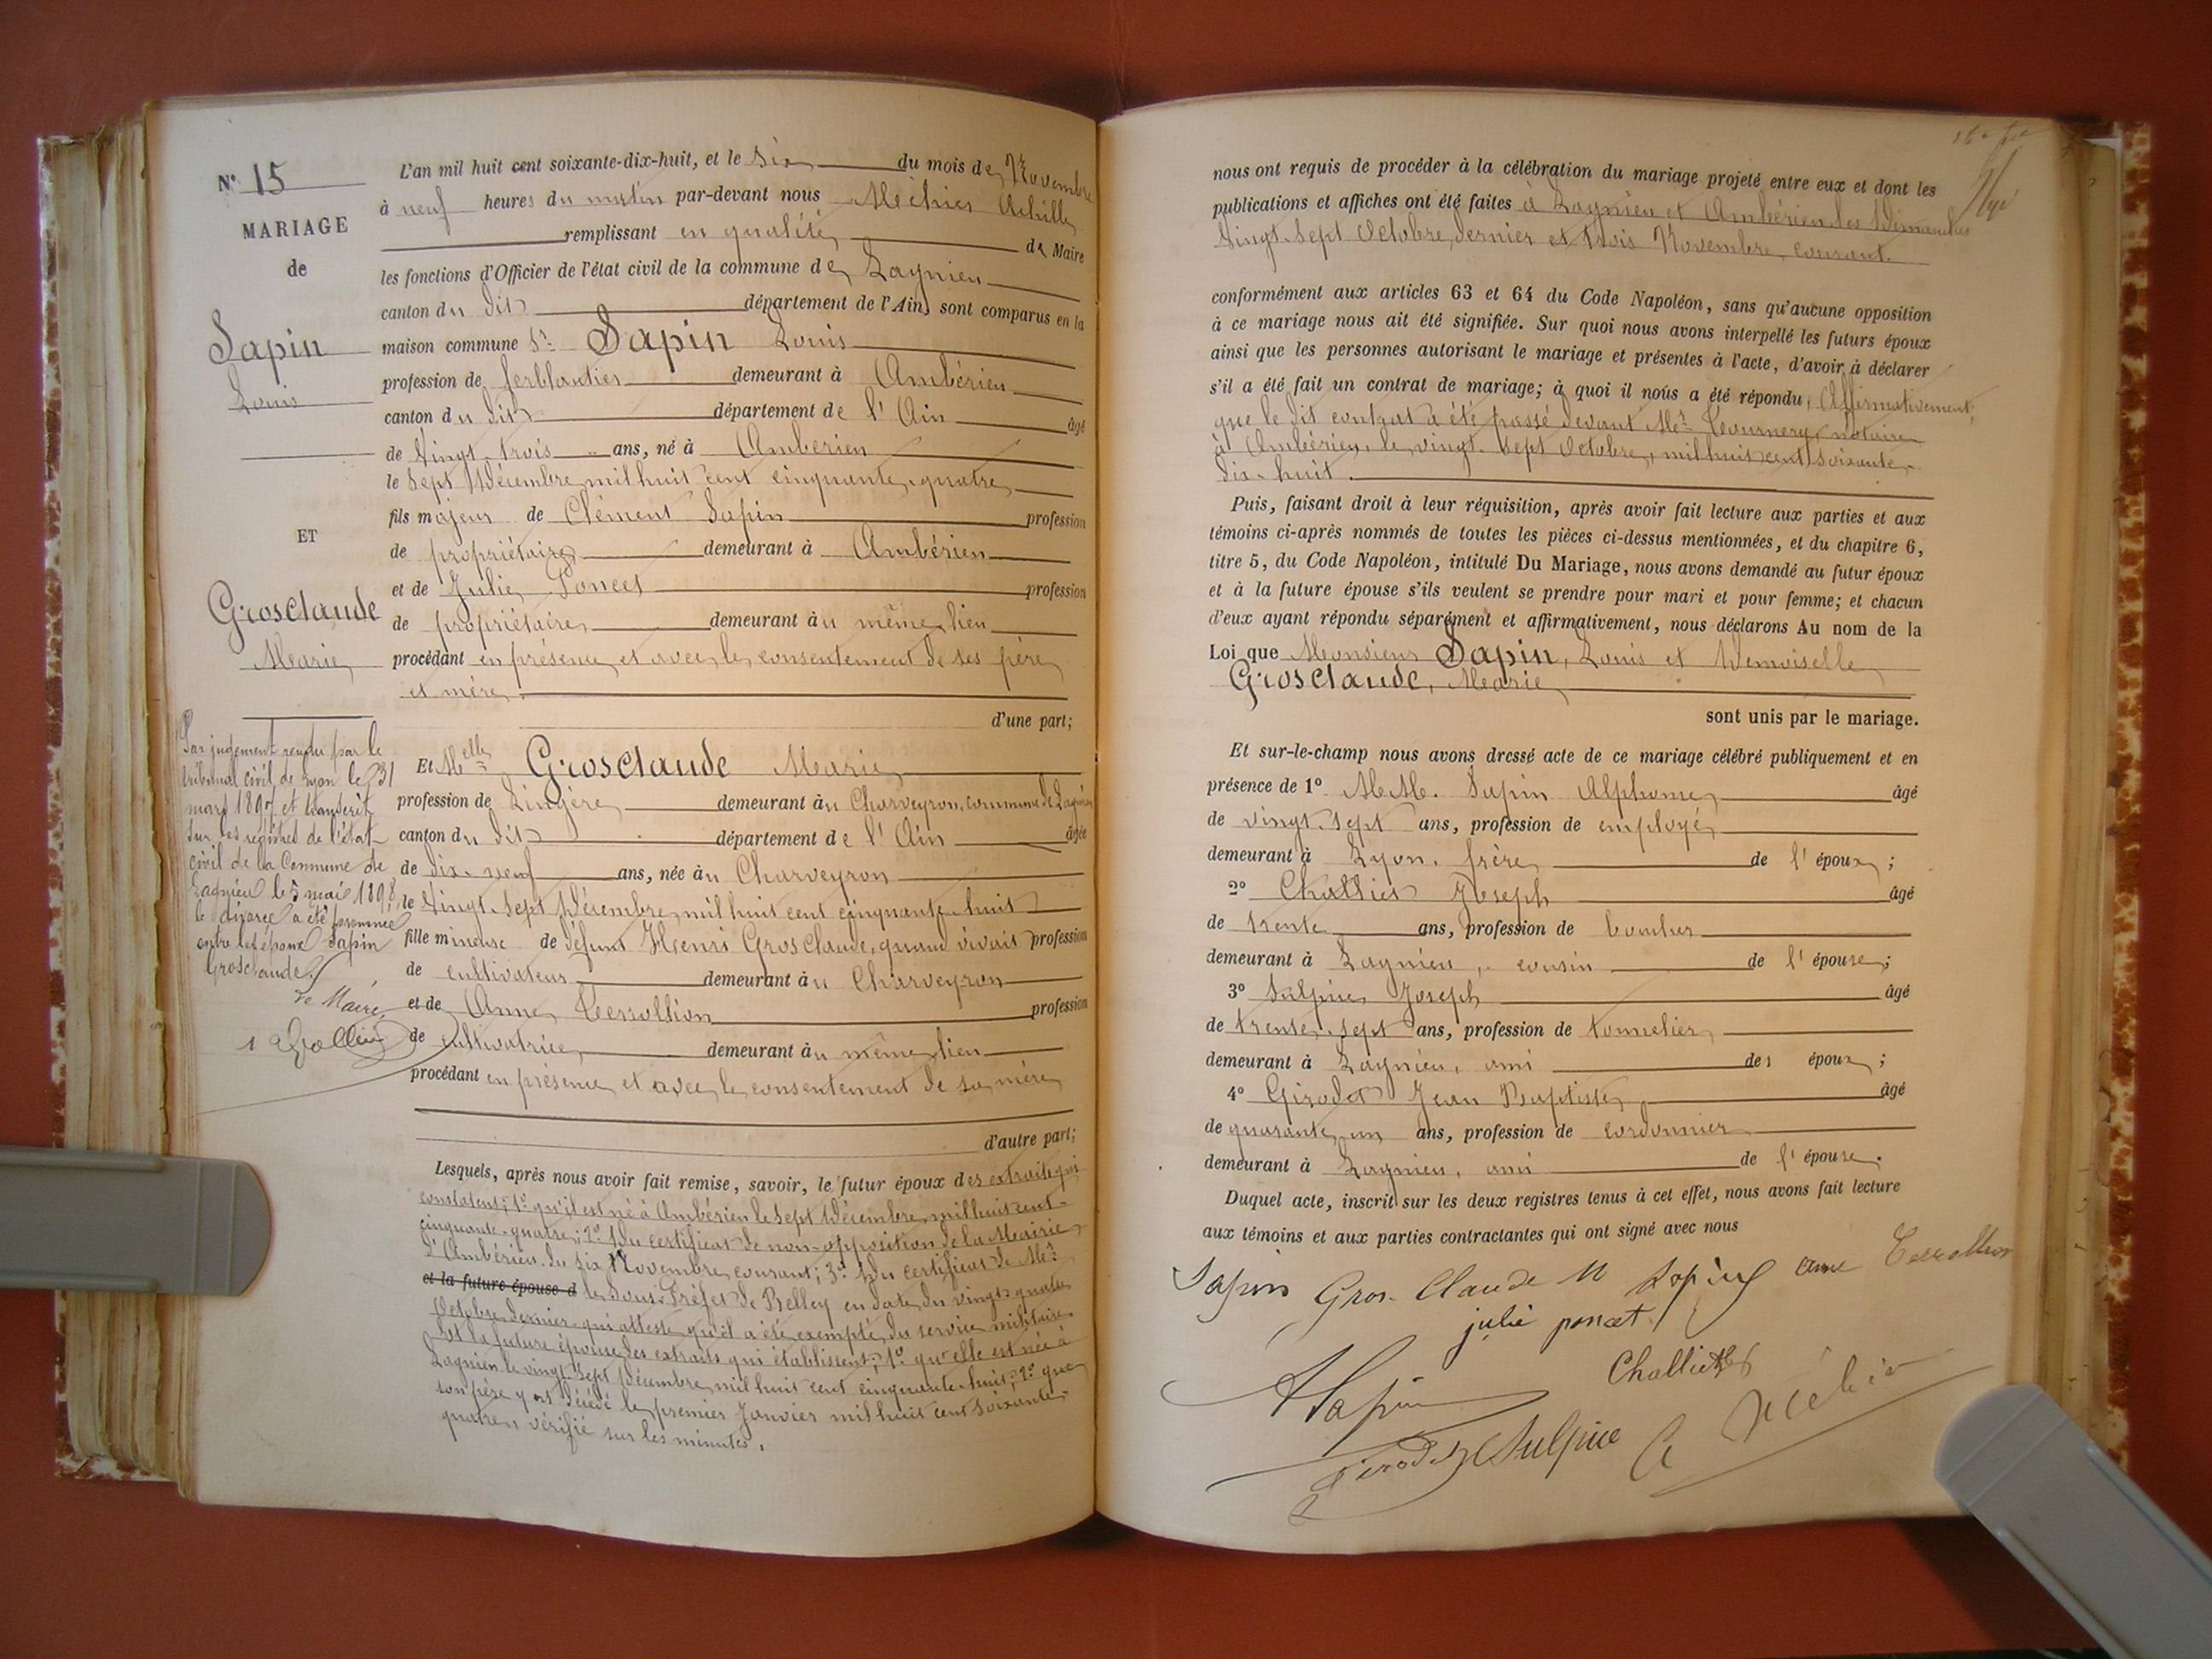 N° 15
MARIAGE
de
Sapin
Louis
ET
Grosclaude
Marie
Par jugement rendu par le
tribunal civil de Lyon le 31
mars 1897 et transcrit
sur les registres de l'état
civil de la Commune de
Lagnieu le 5 mai 1898,
le divorce a été prononcé
entre les époux Sapin
Grosclaude.
Le Maire,
L'an mil huit cent soixante-dix-huit, et le six du mois de Novembre
à neuf heures du matin par-devant nous Méchier Achille
remplissant en qualité de Maire
les fonctions d'Officier de l'état civil de la commune de Lagnieu
canton du dit département de l'Ain sont comparus en la
maison commune Sr Sapin Louis
profession de ferblantier demeurant à Ambérieu
canton du dit département de l'Ain âgé
de vingt-trois ans, né à Ambérieu
le sept Décembre mil huit cent cinquante-quatre
fils majeur de Clément Sapin profession
de propriétaire demeurant à Ambérieu
et de Julie Poncet profession
de propriétaire demeurant au même lieu
procédant en présence et avec le consentement de ses père
et mère
d'une part;
Et Melle Grosclaude Marie
profession de Lingère demeurant au Charveyron, commune de Lagnieu
canton du dit département de l'Ain âgée
de dix-neuf ans, née au Charveyron
le vingt-sept Décembre mil huit cent cinquante-huit
fille mineure de défunt Henri Grosclaude, quand vivait profession
de cultivateur demeurant au Charveyron
et de Anne Tersollion profession
de cultivatrice demeurant au même lieu
procédant en présence et avec le consentement de sa mère
d'autre part;
Lesquels, après nous avoir fait remise, savoir, le futur époux des extraits qui
constatent; 1° qu'il est né à Ambérieu le sept Décembre mil huit cent
cinquante-quatre; 2° Du certificat de non-opposition de la Mairie
d'Ambérieu du six Novembre courant; 3° Du certificat de Mr
et la future épouse d le Sous-Préfet de Belley en date du vingt-quatre
Octobre dernier qui atteste qu'il a été exempté du service militaire
Et la future épouse des extraits qui établissent; 1° qu'elle est née à
Lagnieu le vingt-sept Décembre mil huit cent cinquante-huit; 2° que
son père y est décédé le premier Janvier mil huit cent soixante-
quatre vérifié sur les minutes.
nous ont requis de procéder à la célébration du mariage projeté entre eux et dont les
publications et affiches ont été faites à Lagnieu et Ambérieu les Dimanches
vingt-sept Octobre dernier et trois Novembre courant.
conformément aux articles 63 et 64 du Code Napoléon, sans qu'aucune opposition
à ce mariage nous ait été signifiée. Sur quoi nous avons interpellé les futurs époux
ainsi que les personnes autorisant le mariage et présentes à l'acte, d'avoir à déclarer
s'il a été fait un contrat de mariage; à quoi il nous a été répondu, Affirmativement;
que le dit contrat a été passé devant Me Tournery, notaire
à Ambérieu, le vingt-sept Octobre, mil huit cent soixante-
dix-huit.
Puis, faisant droit à leur réquisition, après avoir fait lecture aux parties et aux
témoins ci-après nommés de toutes les pièces ci-dessus mentionnées, et du chapitre 6,
titre 5, du Code Napoléon, intitulé Du Mariage, nous avons demandé au futur époux
et à la future épouse s'ils veulent se prendre pour mari et pour femme; et chacun
d'eux ayant répondu séparément et affirmativement, nous déclarons Au nom de la
Loi que Monsieur Sapin, Louis et Demoiselle
Grosclaude, Marie
sont unis par le mariage.
Et sur-le-champ nous avons dressé acte de ce mariage célébré publiquement et en
présence de 1° MM. Sapin Alphonse âgé
de vingt-sept ans, profession de employé
demeurant à Lyon, frère de l'époux;
2° Challiet Joseph âgé
de trente ans, profession de boucher
demeurant à Lagnieu, cousin de l'épouse;
3° Sulpice Joseph âgé
de trente-sept ans, profession de tonnelier
demeurant à Lagnieu, ami des époux;
4° Girodet Jean Baptiste âgé
de quarante-un ans, profession de cordonnier
demeurant à Lagnieu, ami de l'épouse.
Duquel acte, inscrit sur les deux registres tenus à cet effet, nous avons fait lecture
aux témoins et aux parties contractantes qui ont signé avec nous
Sapin Gros-Claude M Sapin anne Tersollion
julie poncet
Challiet
A Sapin
Girodet Sulpice A Méchier